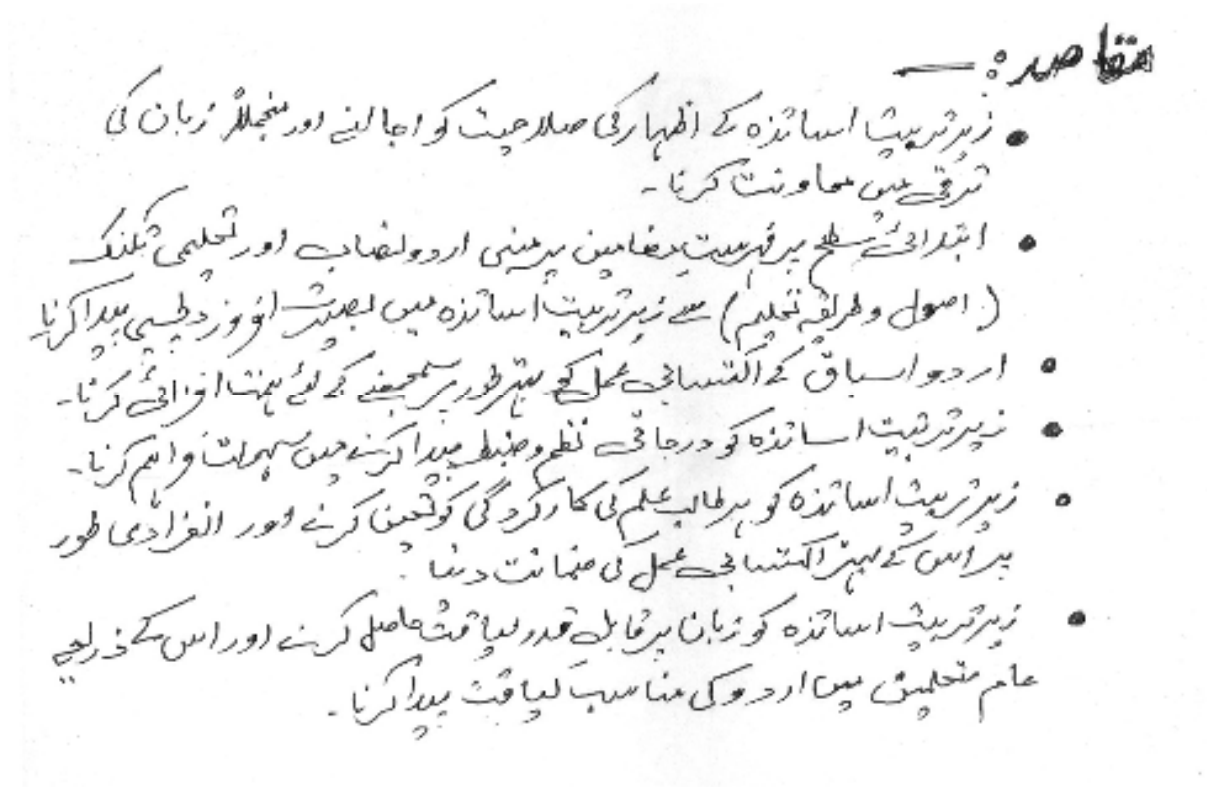 مقاصد :—
• زیر تربیت اساتذہ کے اظہار کی صلاحیت کو اجالنے اور منجملہ زبان کی
ترقی میں معاونت کرنا۔
• ابتدائی سطح پر فہرست مضامین پر مبنی اردو نصاب اور تعلیمی تکنک
(اصول و طریقہ تعلیم) سے زیر تربیت اساتذہ میں بصیرت افروز دلچسپی پیدا کرنا
• اردو اسباق کے اکتسابی عمل کو بہتر طور پر سمجھنے کے لئے ہمت افزائی کرنا۔
• زیر تربیت اساتذہ کو درجاتی نظم و ضبط پیدا کرنے میں سہولت فراہم کرنا۔
• زیر تربیت اساتذہ کو ہر طالب علم کی کارکردگی کو تعین کرنے اور انفرادی طور
پر اس کے بہتر اکتسابی عمل کی ضمانت دینا۔
• زیر تربیت اساتذہ کو زبان پر قابل قدر لیاقت حاصل کرنے اور اس کے ذریعے
عام متعلمین میں اردو کی مناسب لیاقت پیدا کرنا۔